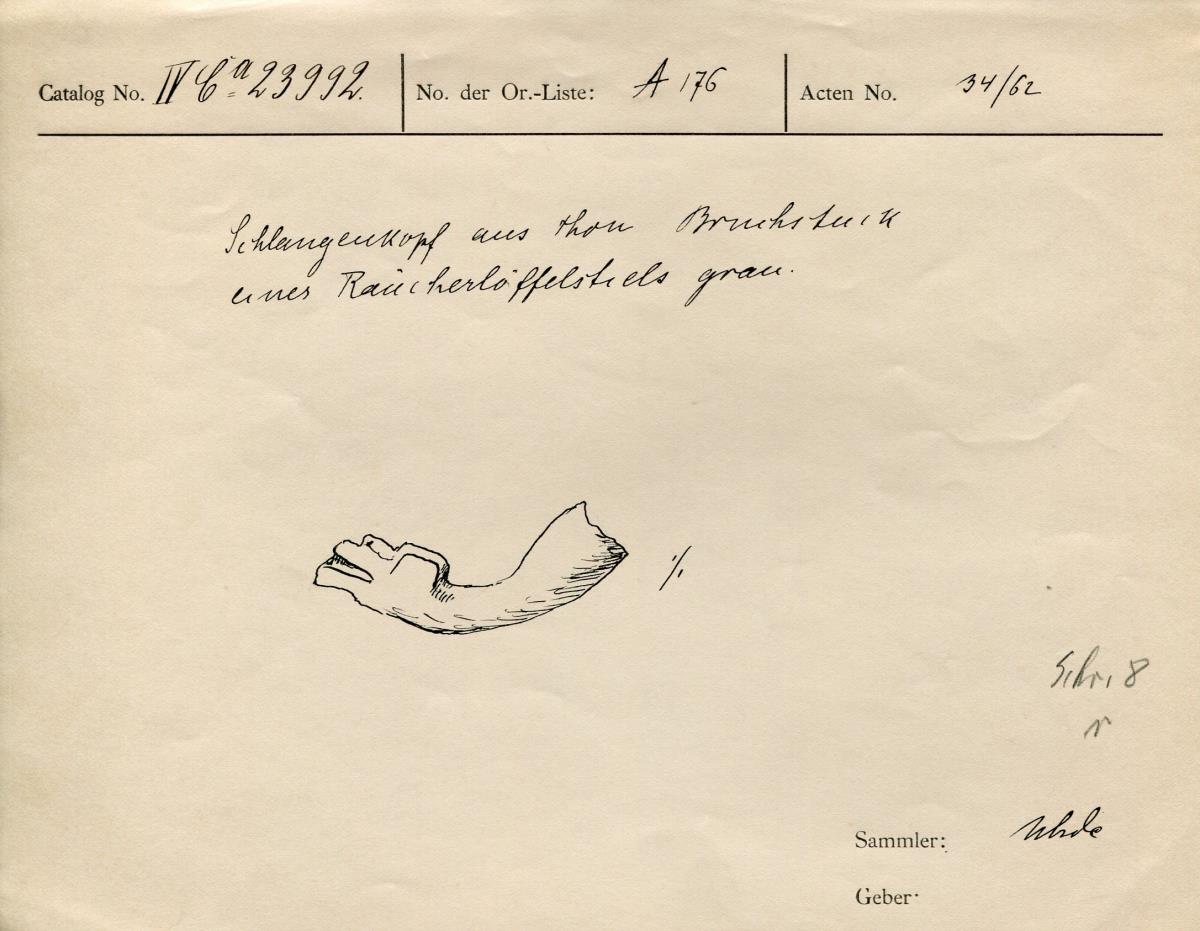 Catalog No. IV Ca 23992. No. der Or.-Liste: A 176 Acten No. 34/62
Schlangenkopf aus Thon Bruchstuck
eines Räucherlöffelstiels grau.
1/1
Schr. 8
r
Sammler: Uhde
Geber: